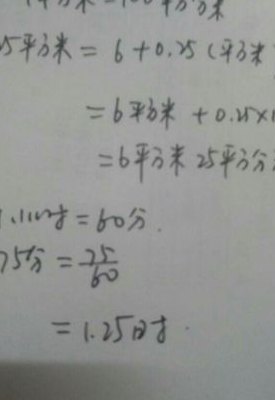 平方米=100平方分米
25平方米 = 6 + 0.25 (平方米
= 6平方米 + 0.25×1
= 6平方米 25平方分
1小时 = 60分.
75分 = 75/60
= 1.25时.